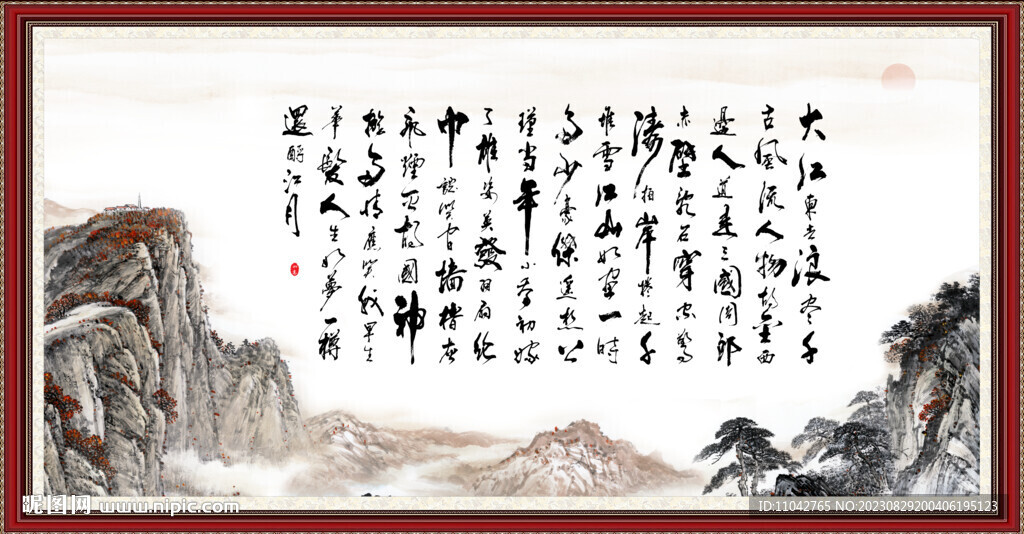 大江東去浪尽千
古風流人物故壘西
邊人道是三國周郎
赤壁亂石穿空驚
濤拍岸捲起千
堆雪江山如畫一時
多少豪傑遥想公
瑾當年小喬初嫁
了雄姿英發羽扇綸
巾談笑间墙櫓灰
飛煙灭故國神
遊多情應笑我早生
華髮人生如夢一樽
還酹江月
昵图网 www.nipic.com
ID:11042765 NO:20230829200406195123